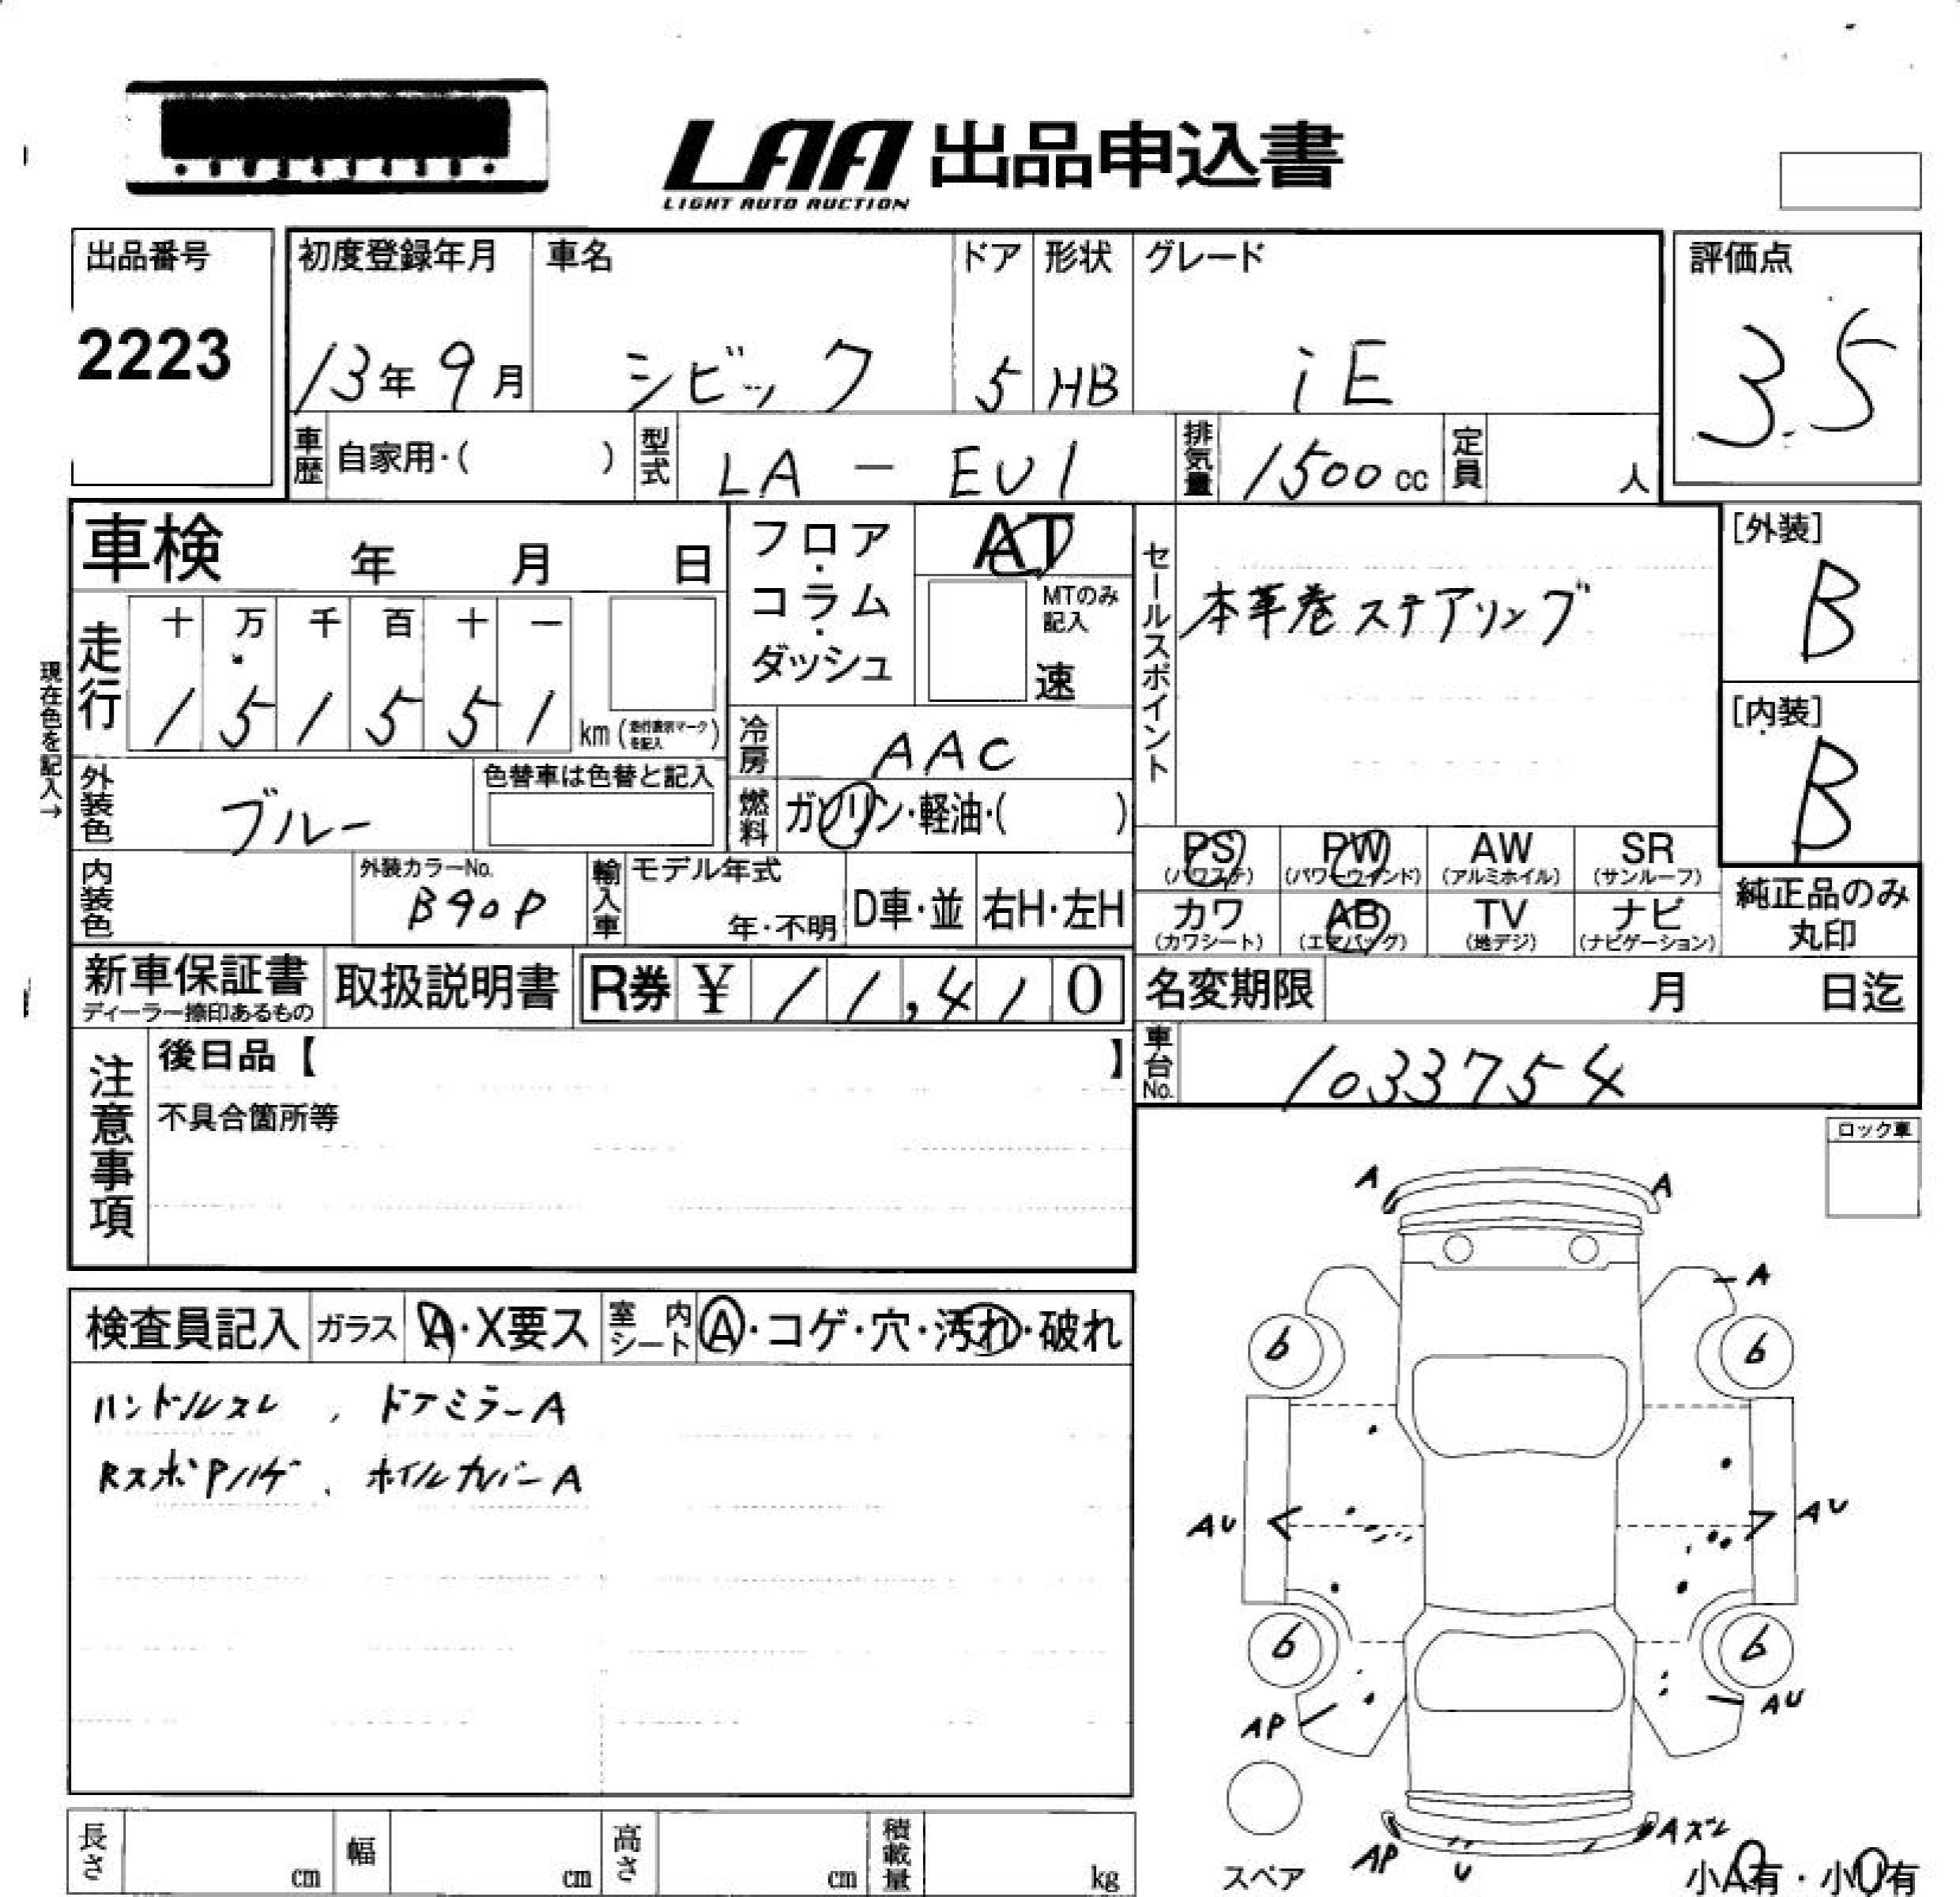 LAA 出品申込書
LIGHT AUTO AUCTION
出品番号
2223
初度登録年月
13年 9月
車名
シビック
ドア
5
形状
HB
グレード
iE
評価点
3.5
車歴 自家用・( )
型式 LA - EU1
排気量 1500 cc
定員 人
車検 年 月 日
フロア・コラム・ダッシュ
AT
MTのみ記入
速
セールスポイント
本革巻ステアリング
[外装]
B
[内装]
B
現在色を記入→
走行
十 万 千 百 十 一
1 5 1 5 5 1 km (走行表示マークを記入)
冷房 AAC
外装色 ブルー
色替車は色替と記入
燃料 ガソリン・軽油・( )
PS (パワステ)
PW (パワーウインド)
AW (アルミホイル)
SR (サンルーフ)
内装色
外装カラーNo.
B90P
輸入車
モデル年式
年・不明
D車・並
右H・左H
カワ (カワシート)
AB (エアバッグ)
TV (地デジ)
ナビ (ナビゲーション)
純正品のみ
丸印
新車保証書
ディーラー捺印あるもの
取扱説明書
R券 ¥ 11,410
名変期限 月 日迄
車台No. 1033754
注意事項
後日品【 】
不具合箇所等
ロック車
検査員記入
ガラス A・X要ス
室内シート A・コゲ・穴・汚れ・破れ
ハンドルスレ、ドアミラーA
RスポPハゲ、ホイルカバーA
A A
A
6 6
AU AU
6 6
AP AU
AP U Aズレ
スペア
小A有・小U有
長さ cm
幅 cm
高さ cm
積載量 kg